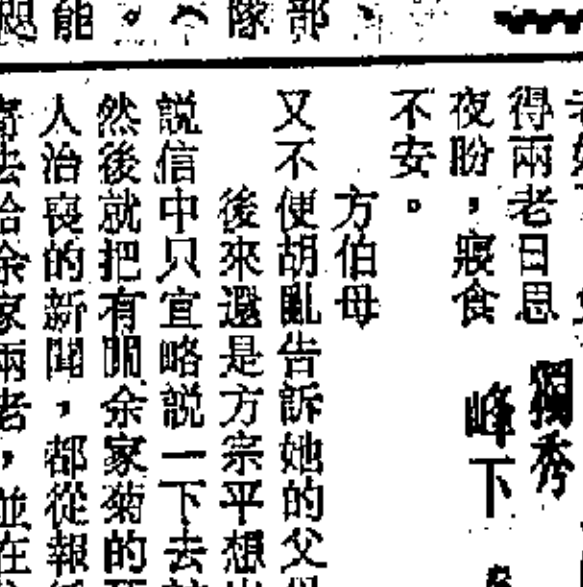 能
隊部
得兩老日思
夜盼，寢食
不安。
獨秀
峰下
方伯母
又不便胡亂告訴她的父母
後來還是方宗平想出
説信中只宜略説一下去
然後就把有關余家菊的
人治喪的新聞，都從報
寄去給余家兩老，並在